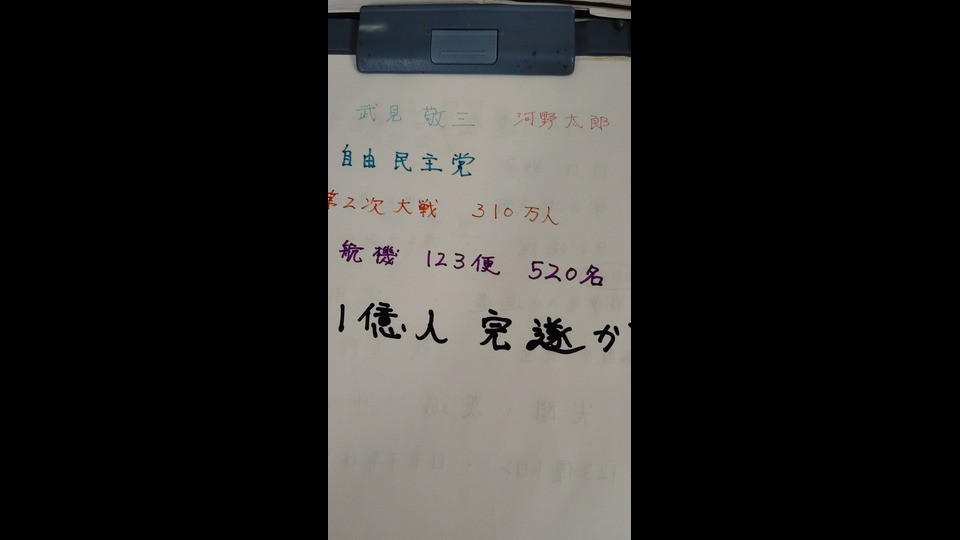 武見 敬三 河野太郎
自由民主党
第2次大戦 310万人
航機 123便 520名
1億人 完遂か